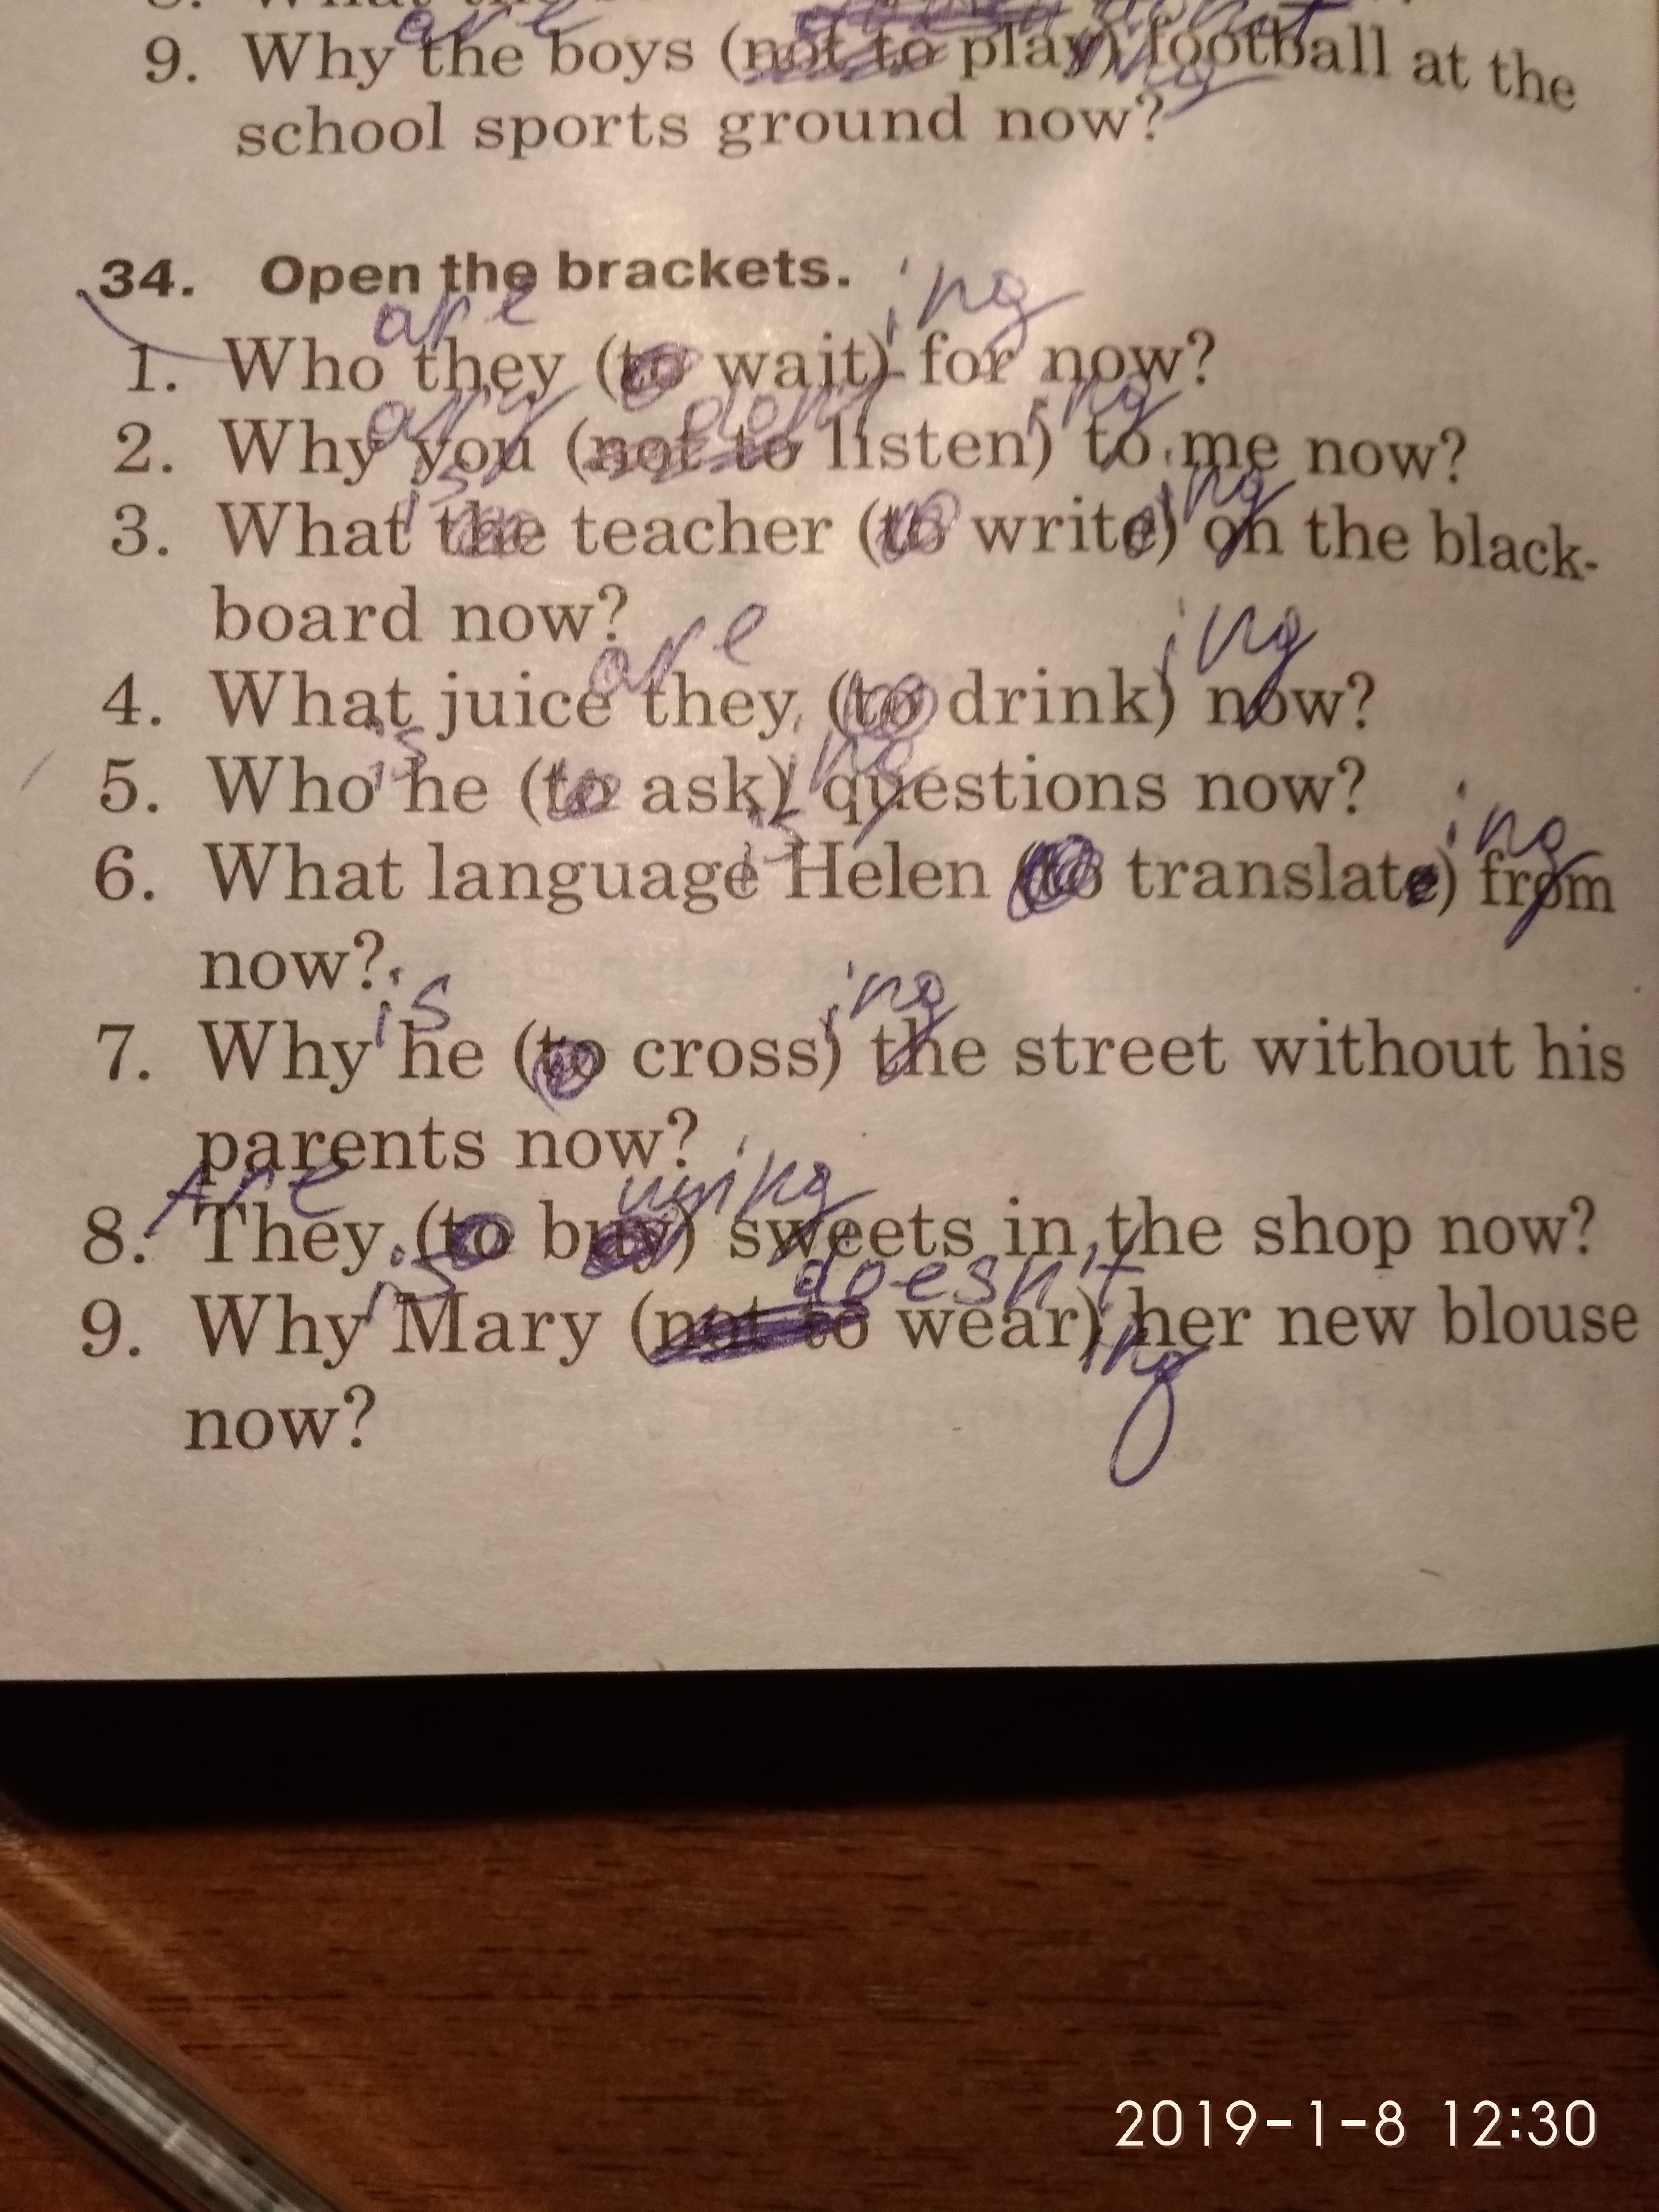 are
9. Why the boys (not to play) football at the
ing
school sports ground now?
34. Open the brackets.
are ing
1. Who they (to wait) for now?
ing
2. Why you (not to listen) to me now?
is ing
3. What the teacher (to write) on the black-
board now?
are ing
4. What juice they (to drink) now?
is ing
5. Who he (to ask) questions now?
is ing
6. What language Helen (to translate) from
now?
is ing
7. Why he (to cross) the street without his
parents now?
Are uying
8. They (to buy) sweets in the shop now?
is doesn't
9. Why Mary (not to wear) her new blouse
ing
now?
2019-1-8 12:30